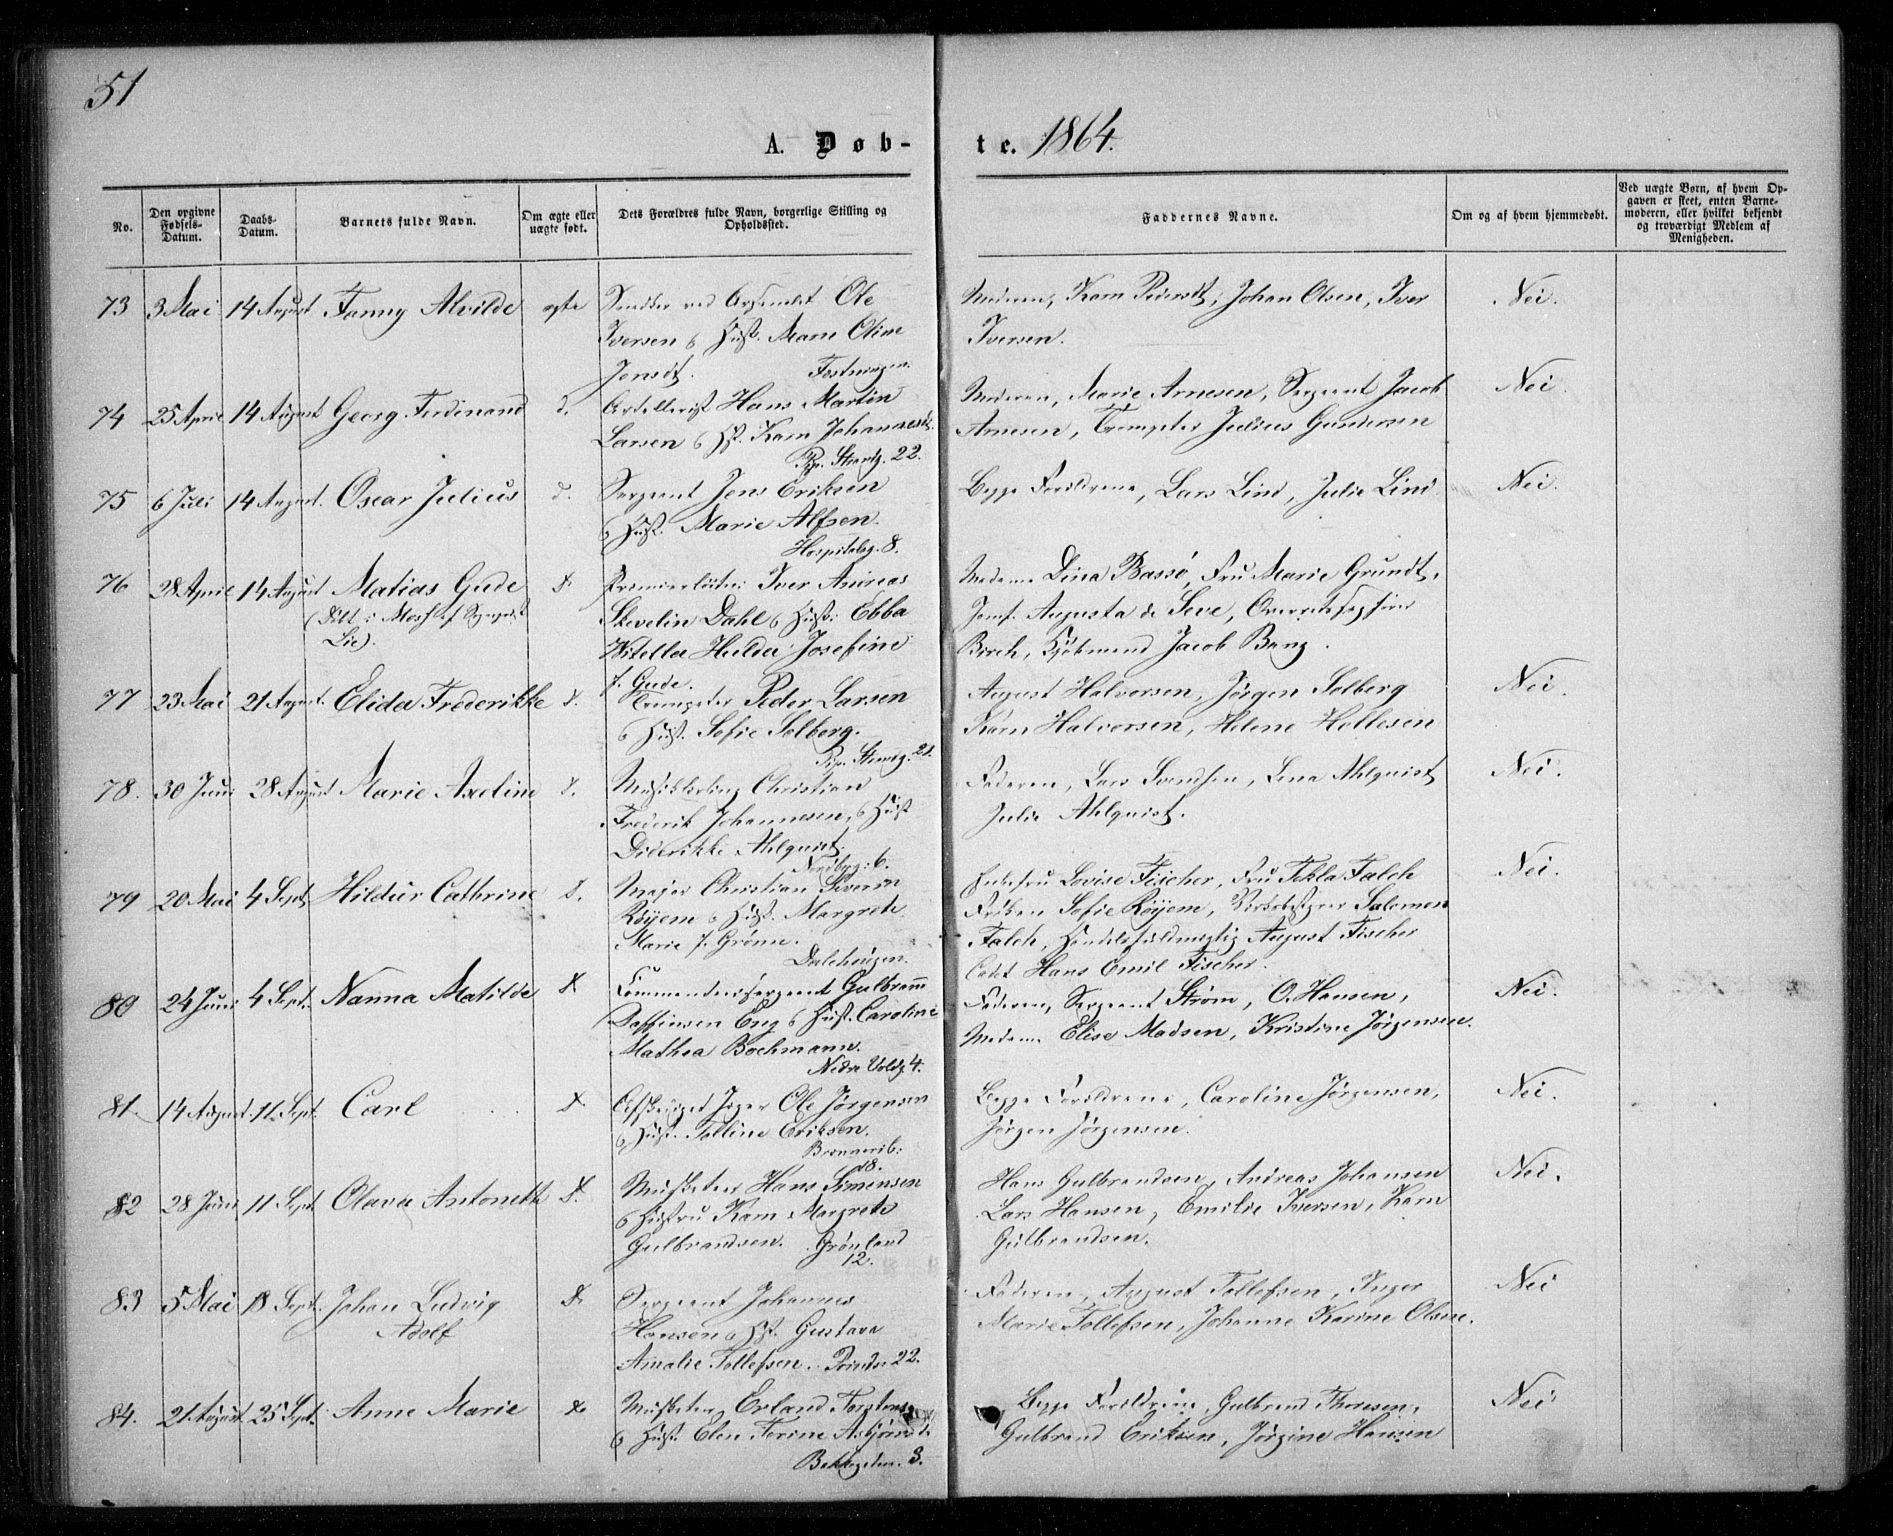 51
A. Døb-
te. 1864.
No.
Den opgivne Fødsels-Datum.
Daabs-Datum.
Barnets fulde Navn.
Om ægte eller uægte født.
Dets Forældres fulde Navn, borgerlige Stilling og Opholdssted.
Faddernes Navne.
Om og af hvem hjemmedøbt.
Ved uægte Børn, af hvem Opgaven er skeet, enten Barnemoderen, eller hvilket bekjendt og troværdigt Medlem af Menigheden.
73 3 Mai 14 August Fanny Alvilde ægte Ole
Iversen & Hust. Maren Oline
Jensdt. Fæstningen.
Moderen, Karen Pedersdt, Johan Olsen, Iver
Iversen.
Nei.
74 25 April 14 August Georg Ferdinand d. Artellerist Hans Martin
Larsen & H. Karen Johannesdt.
22.
Moderen, Marie Arnesen, Sergeant Jacob
Arnesen, Trompeter Julius Gundersen
Nei.
75 6 Juli 14 August. Oscar Julius d. Sergeant Jens Eriksen
& Hust. Marie Alfsen.
Hospitalsg. 8.
Begge Forældrene, Lars Lind, Julie Lind
Nei.
76 28 April 14 August Matias Gude d. Premierløitn: Iver Andreas
(Døbt i Moss af Sogneprest
Lie).
Skevelin Dahl & Hust: Ebba
Witella Hulda Josefine
f. Gude.
Madame Dina Bassø, Fru Marie Grundt,
Jomf. Augusta de Seve,
Birch, Kjøbmand Jacob Bang.
77 23 Mai 21 August. Elida Frederikke d. Trompeter Peder Larsen
& Hust. Sofie Solberg.
21.
August Halvorsen, Jørgen Solberg
Karen Halvorsen, Helene Hollesen
Nei.
78. 30 Juni 28 August Marie Axeline d. Christian
Frederik Johannesen, & Hust
Diderikke Ahlquist.
6.
Faderen, Lars Svendsen, Lena Ahlquist
Julie Ahlquist.
Nei.
79 20 Mai 4 Sept. Hildur Cathrine d. Major Christian Severin
Røyem & Hust. Margrete
Marie f. Grønn.
Dalehaugen.
Enkefru Lovise Fischer, Fru Tekla Falch
Frøken Sofie Røyem, Salomon
Falch, Handelsfuldmægtig August Fischer
Cadet Hans Emil Fischer.
Nei.
80 24 Juni 4 Sept. Nanna Matilde d. Commandeersergeant Gulbrand
Eng & Hust. Caroline
Mathea Bochmann.
Nedre Voldg. 4.
Faderen, Sergeant Strøm, O. Hansen,
Madame Elise Madsen, Kristine Jørgensen.
Nei.
81. 14 August 11 Sept. Carl d. Afskediget Jæger Ole Jørgensen
& Hust. Tolline Eriksen.
18.
Begge Forældrene, Caroline Jørgensen,
Jørgen Jørgensen.
Nei.
82 28 Juni 11 Sept. Olava Antonette d. Musketeer Hans Simensen
& Hustru Karen Margrete
Gulbrandsen. Grønland
12.
Hans Gulbrandsen, Andreas Johansen
Lars Hansen, Emilie Iversen, Karen
Gulbrandsen.
Nei.
83 5 Mai 18 Sept. Johan Ludvig d. Sergeant Johannes
Adolf
Hansen & H. Gustava
Amalie Tollefsen. 22.
Faderen, August Tollefsen, Inger
Marie Tollefsen, Johanne Karine Olsen.
Nei
84. 21 August 25 Sept. Anne Marie d. Musketeer Erland
& Hust. Elen Torine
Bakkegaden 3.
Begge Forældrene, Gulbrand Thoresen,
Gulbrand Eriksen, Jørgine Hansen
Nei